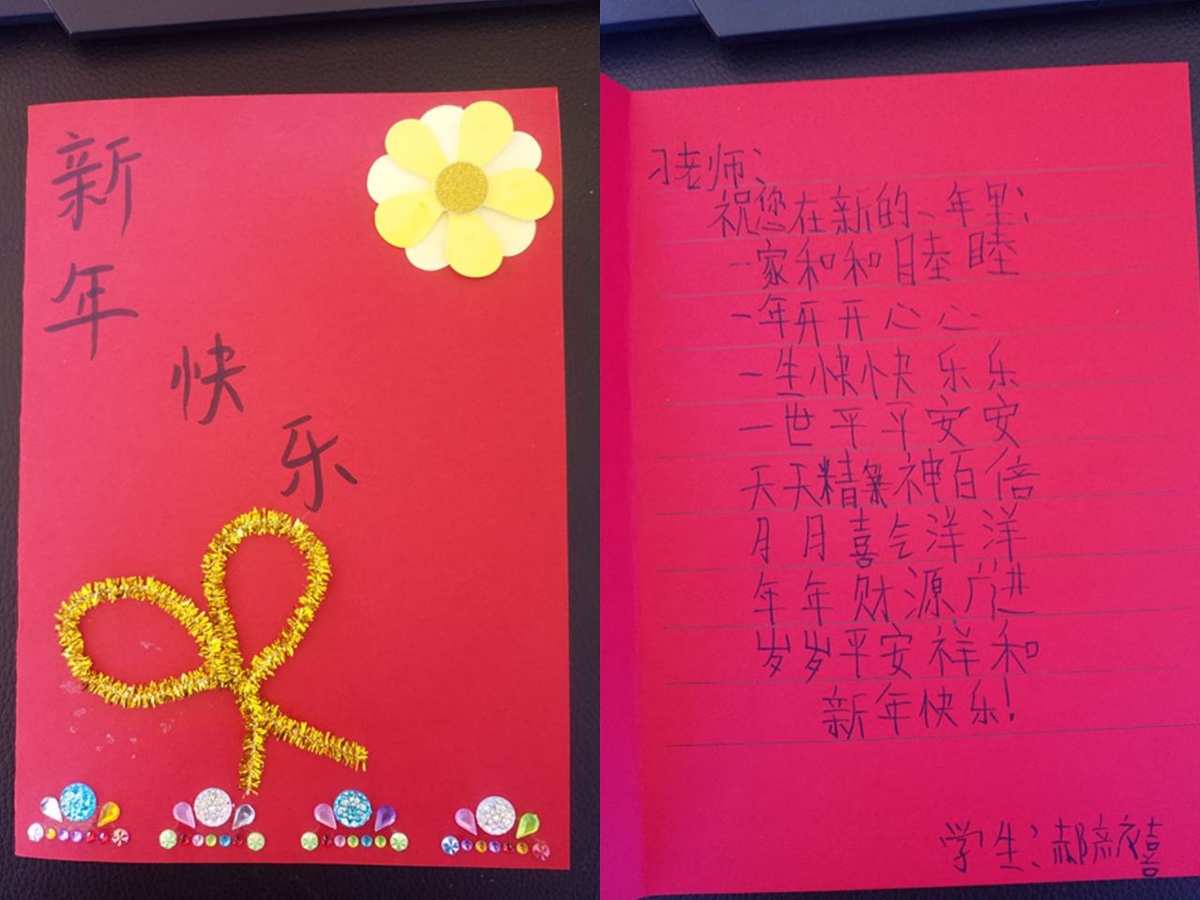 新
年
快
乐
刁老师:
祝您在新的一年里:
一家和和睦睦
一年开开心心
一生快快乐乐
一世平平安安
天天精神百倍
月月喜气洋洋
年年财源广进
岁岁平安祥和
新年快乐!
学生:郝